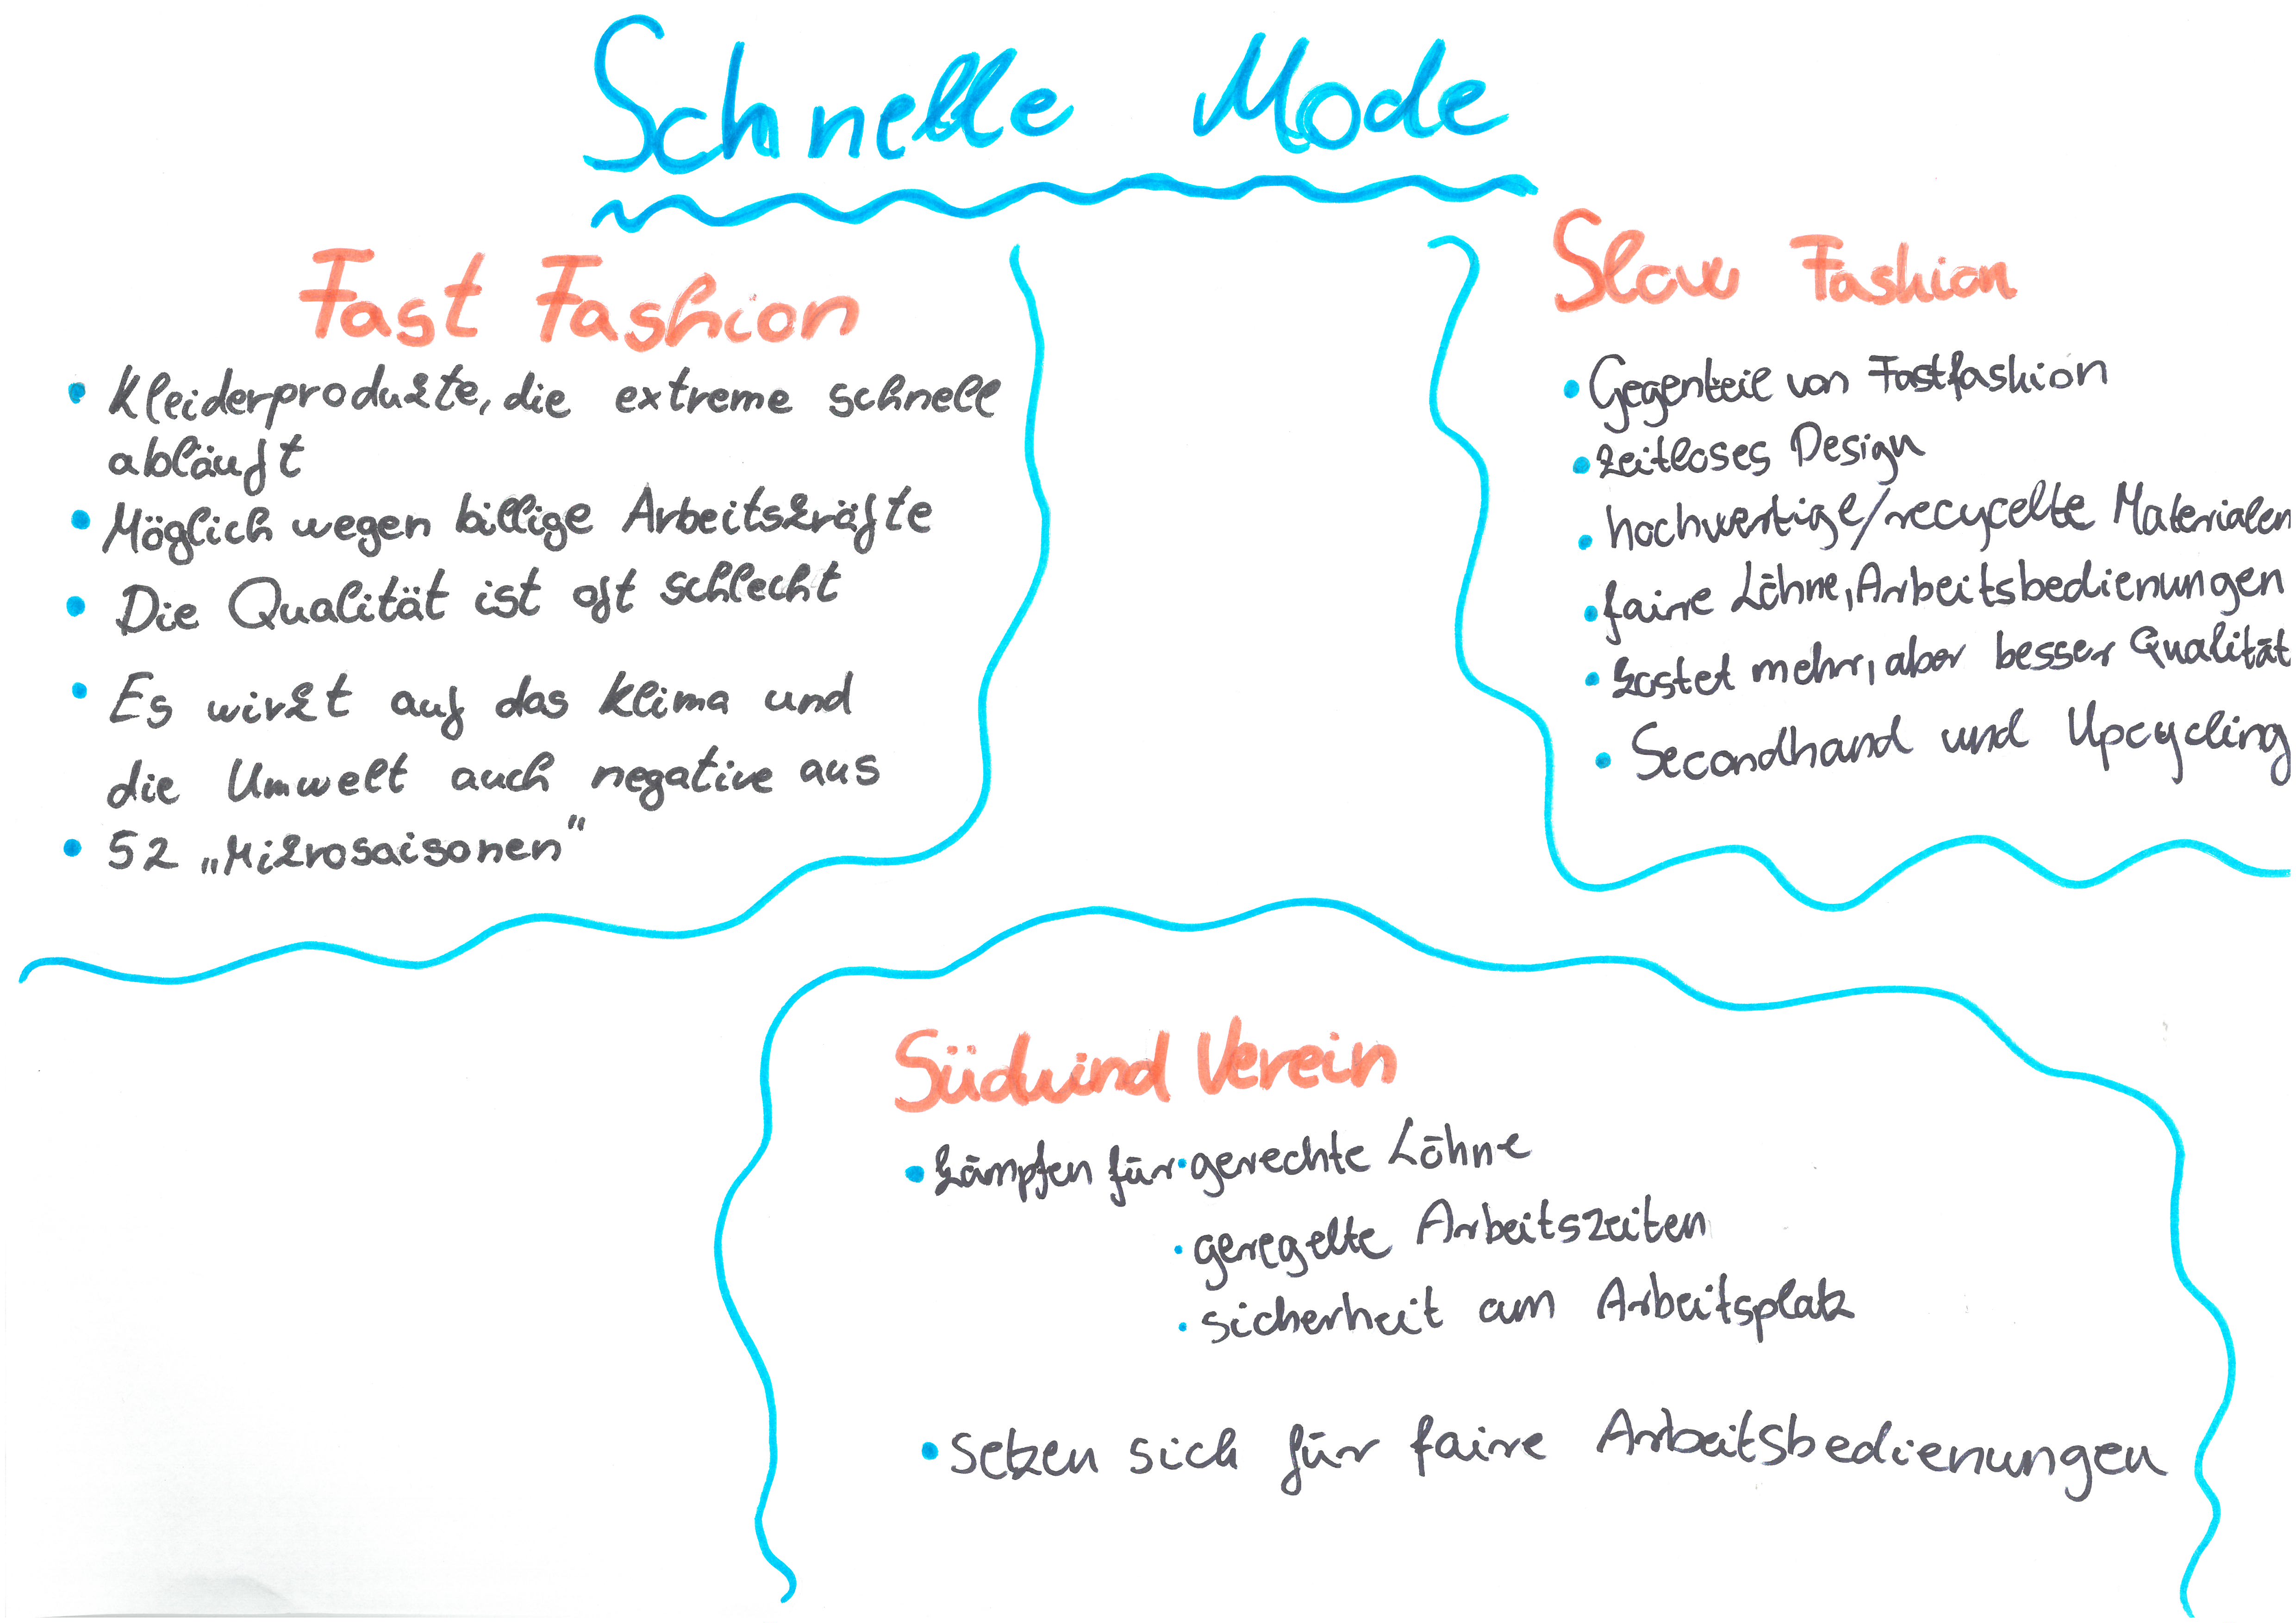 Schnelle Mode
Fast Fashion
• Kleiderprodukte, die extreme schnell
abläuft
• Möglich wegen billige Arbeitskräfte
• Die Qualität ist oft schlecht
• Es wirkt auf das Klima und
die Umwelt auch negative aus
• 52 „Mikrosaisonen“
Slow Fashion
• Gegenteil von Fastfashion
• zeitloses Design
• hochwertige/recycelte Materialen
• faire Löhne, Arbeitsbedienungen
• kostet mehr, aber besser Qualität
• Secondhand und Upcycling
Südwind Verein
• kämpfen für • gerechte Löhne
• geregelte Arbeitszeiten
• sicherheit am Arbeitsplatz
• setzen sich für faire Arbeitsbedienungen